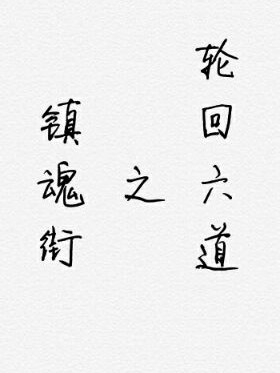 轮回六道
之
镇魂街